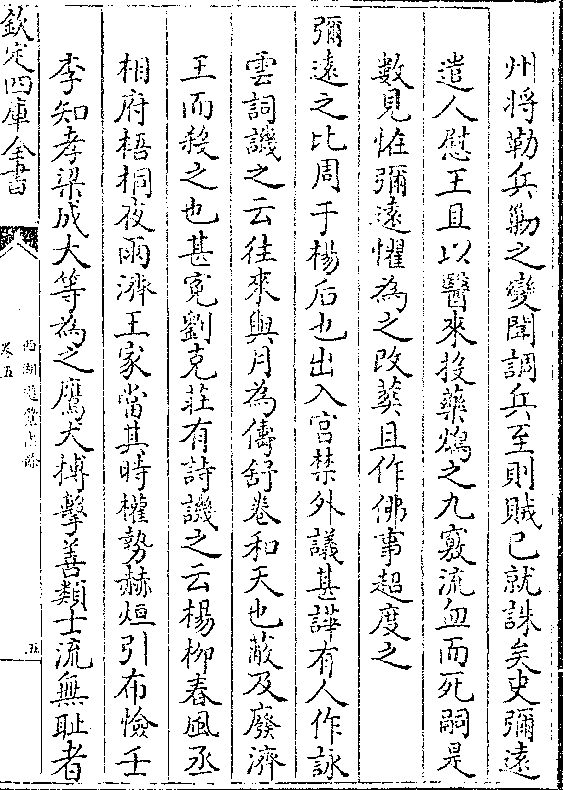 州将勒兵勦之變聞調兵至則賊已就誅矣史彌遠
遣人慰王且以醫來投藥鴆之九竅流血而死嗣是
數見怪彌遠懼為之改葬且作佛事超度之
彌遠之比周于楊后也出入宫禁外議甚譁有人作詠
雲詞譏之云往來與月為儔舒卷和天也蔽及廢濟
王而殺之也甚寃劉克莊有詩譏之云楊柳春風丞
相府梧桐夜雨濟王家當其時權勢赫烜引布憸壬
李知孝梁成大等為之鷹犬搏擊善類士流無耻者
欽定四庫全書
西湖遊覽志餘
卷五
五